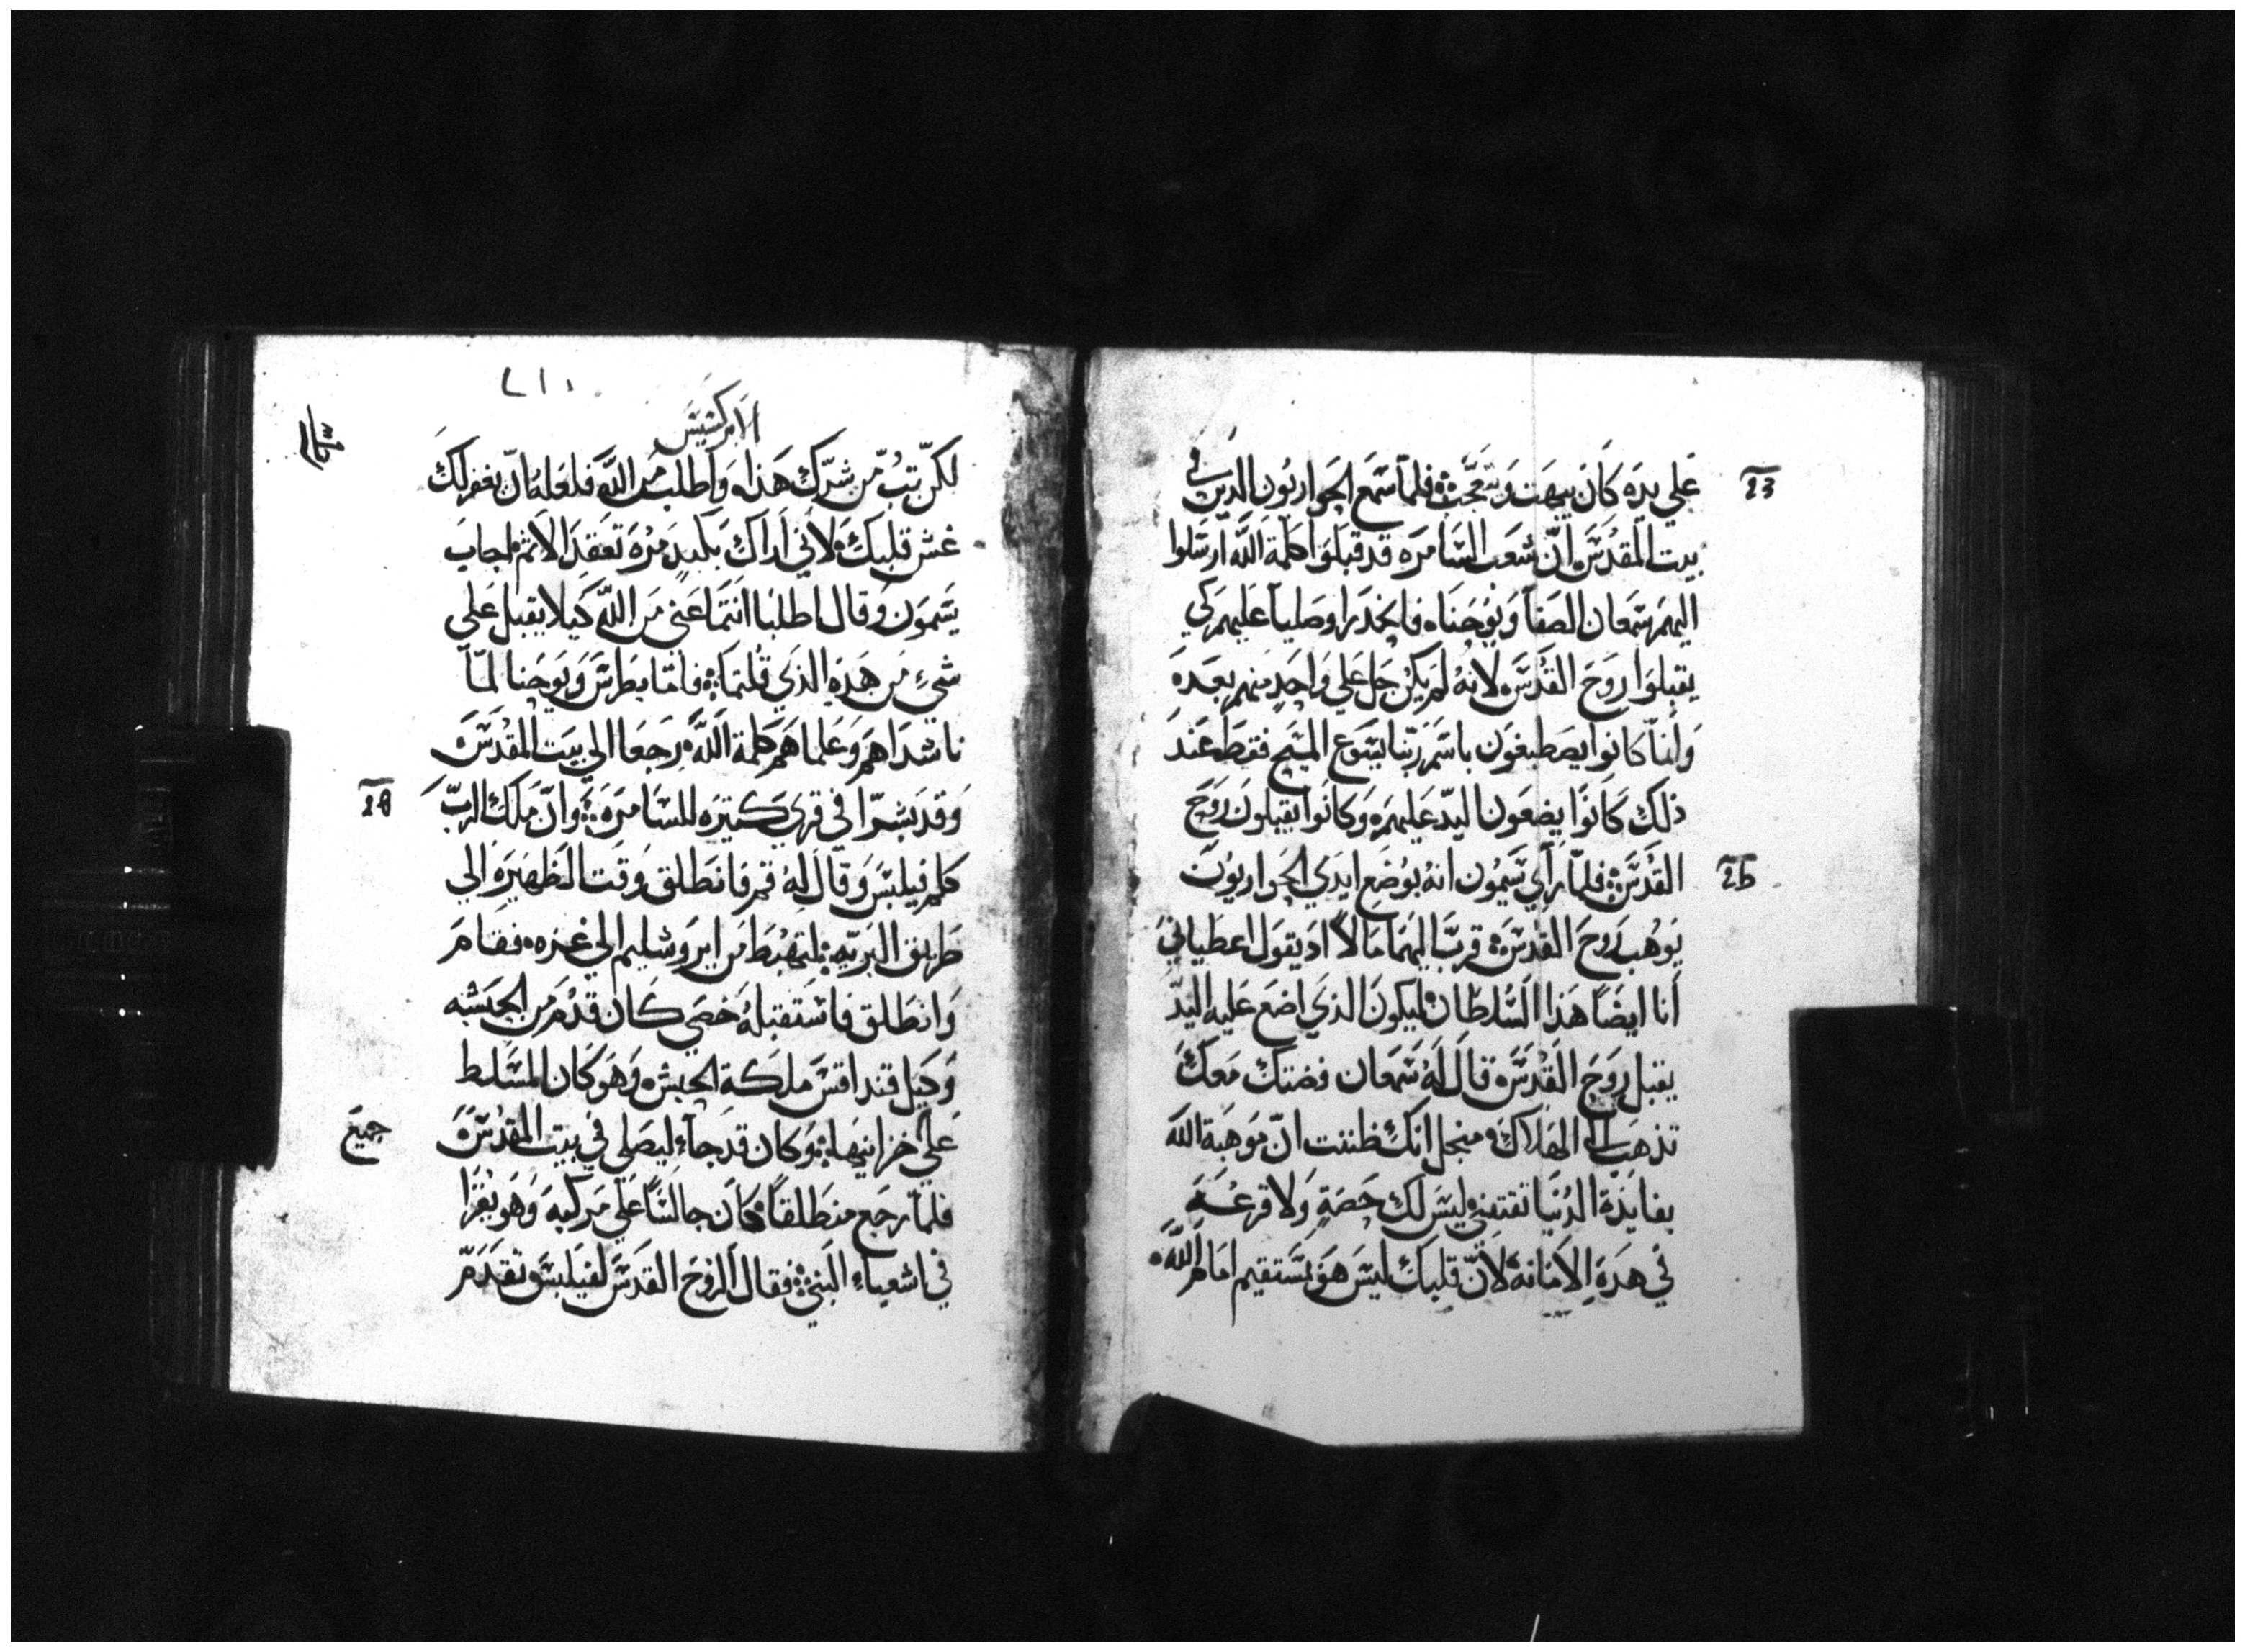 علي يده كان يبهت ويتعجب فلما سمع الحواريون الدين في
بيت المقدس ان شعب السامره قد قبلوا كلمة الله ارسلوا
اليهم شمعان الصفا ويوحنا فانحدرا وصليا عليهم كي
يقبلوا روح القدس لانه لم يكن حل علي واحد منهم بعد
وانما كانوا يصطبغون باسم ربنا يسوع المسيح فقط عند
ذلك كانوا يضعون اليد عليهم وكانوا يقبلون روح
القدس فلما راي سيمون انه بوضع ايدي الحواريون
يوهب روح القدس قرب اليهما مالا اد يقول اعطياني
انا ايضا هذا السلطان ليكون الذي اضع عليه اليد
يقبل روح القدس قال له شمعان فضتك معك
تذهب الي الهلاك منجل انك ظننت ان موهبة الله
بفايدة الدنيا تقتني ليس لك حصة ولا قرعة
في هده الامانه لان قلبك ليس هو مستقيم امام الله
الابركسيس
لكن تب من شرك هذا واطلب من الله فلعله ان يغفر لك
غش قلبك لاني اراك بكبد مره تعقد الاثم اجاب
سيمون وقال اطلبا انتما عني من الله كيلا يقبل علي
شيء من هده الذي قلتما فاما بطرس ويوحنا لما
ناشداهم وعلماهم كلمة الله رجعا الي بيت المقدس
وقد بشرا في قري كتيره للسامره وان ملك الرب
كلم فيلبس وقال له قم فانطلق وقت الظهيره الي
طريق البريه لتهبط من ايروشليم الي غزه فقام
وانطلق فاستقبله خصي كان قدم من الحبشه
وكيل قنداقس ملكة الحبش وهو كان المسلط
علي خزانيها وكان قد جاء ليصلي في بيت المقدس
جميع
فلما رجع منطلقا كان جالسا علي مركبه وهو يقرا
في اشعياء النبي فقال الروح القدس لفيلبس تقدم